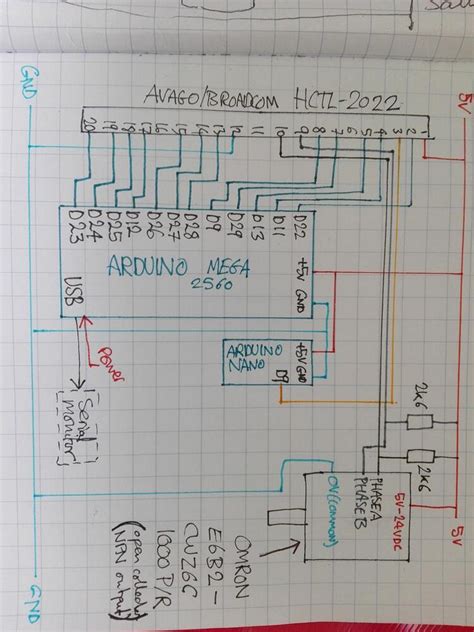 GND
AVAGO/BROADCOM HCTL-2022
5V
20 19 18 17 16 15 14 13 12 11 10 9 8 7 6 5 4 3 2 1
D23 D24 D25 D12 D26 D27 D28 D9 D29 D13 D11 D22
+5V GND
ARDUINO MEGA
2560
USB
Power
Serial
Monitor
ARDUINO
NANO
+5V GND
D9
2k6
2k6
5V-24VDC
PHASE A
PHASE B
0V (COMMON)
OMRON
E6B2-
CWZ6C
1800 P/R
(open collector
NPN output)
GND
5V